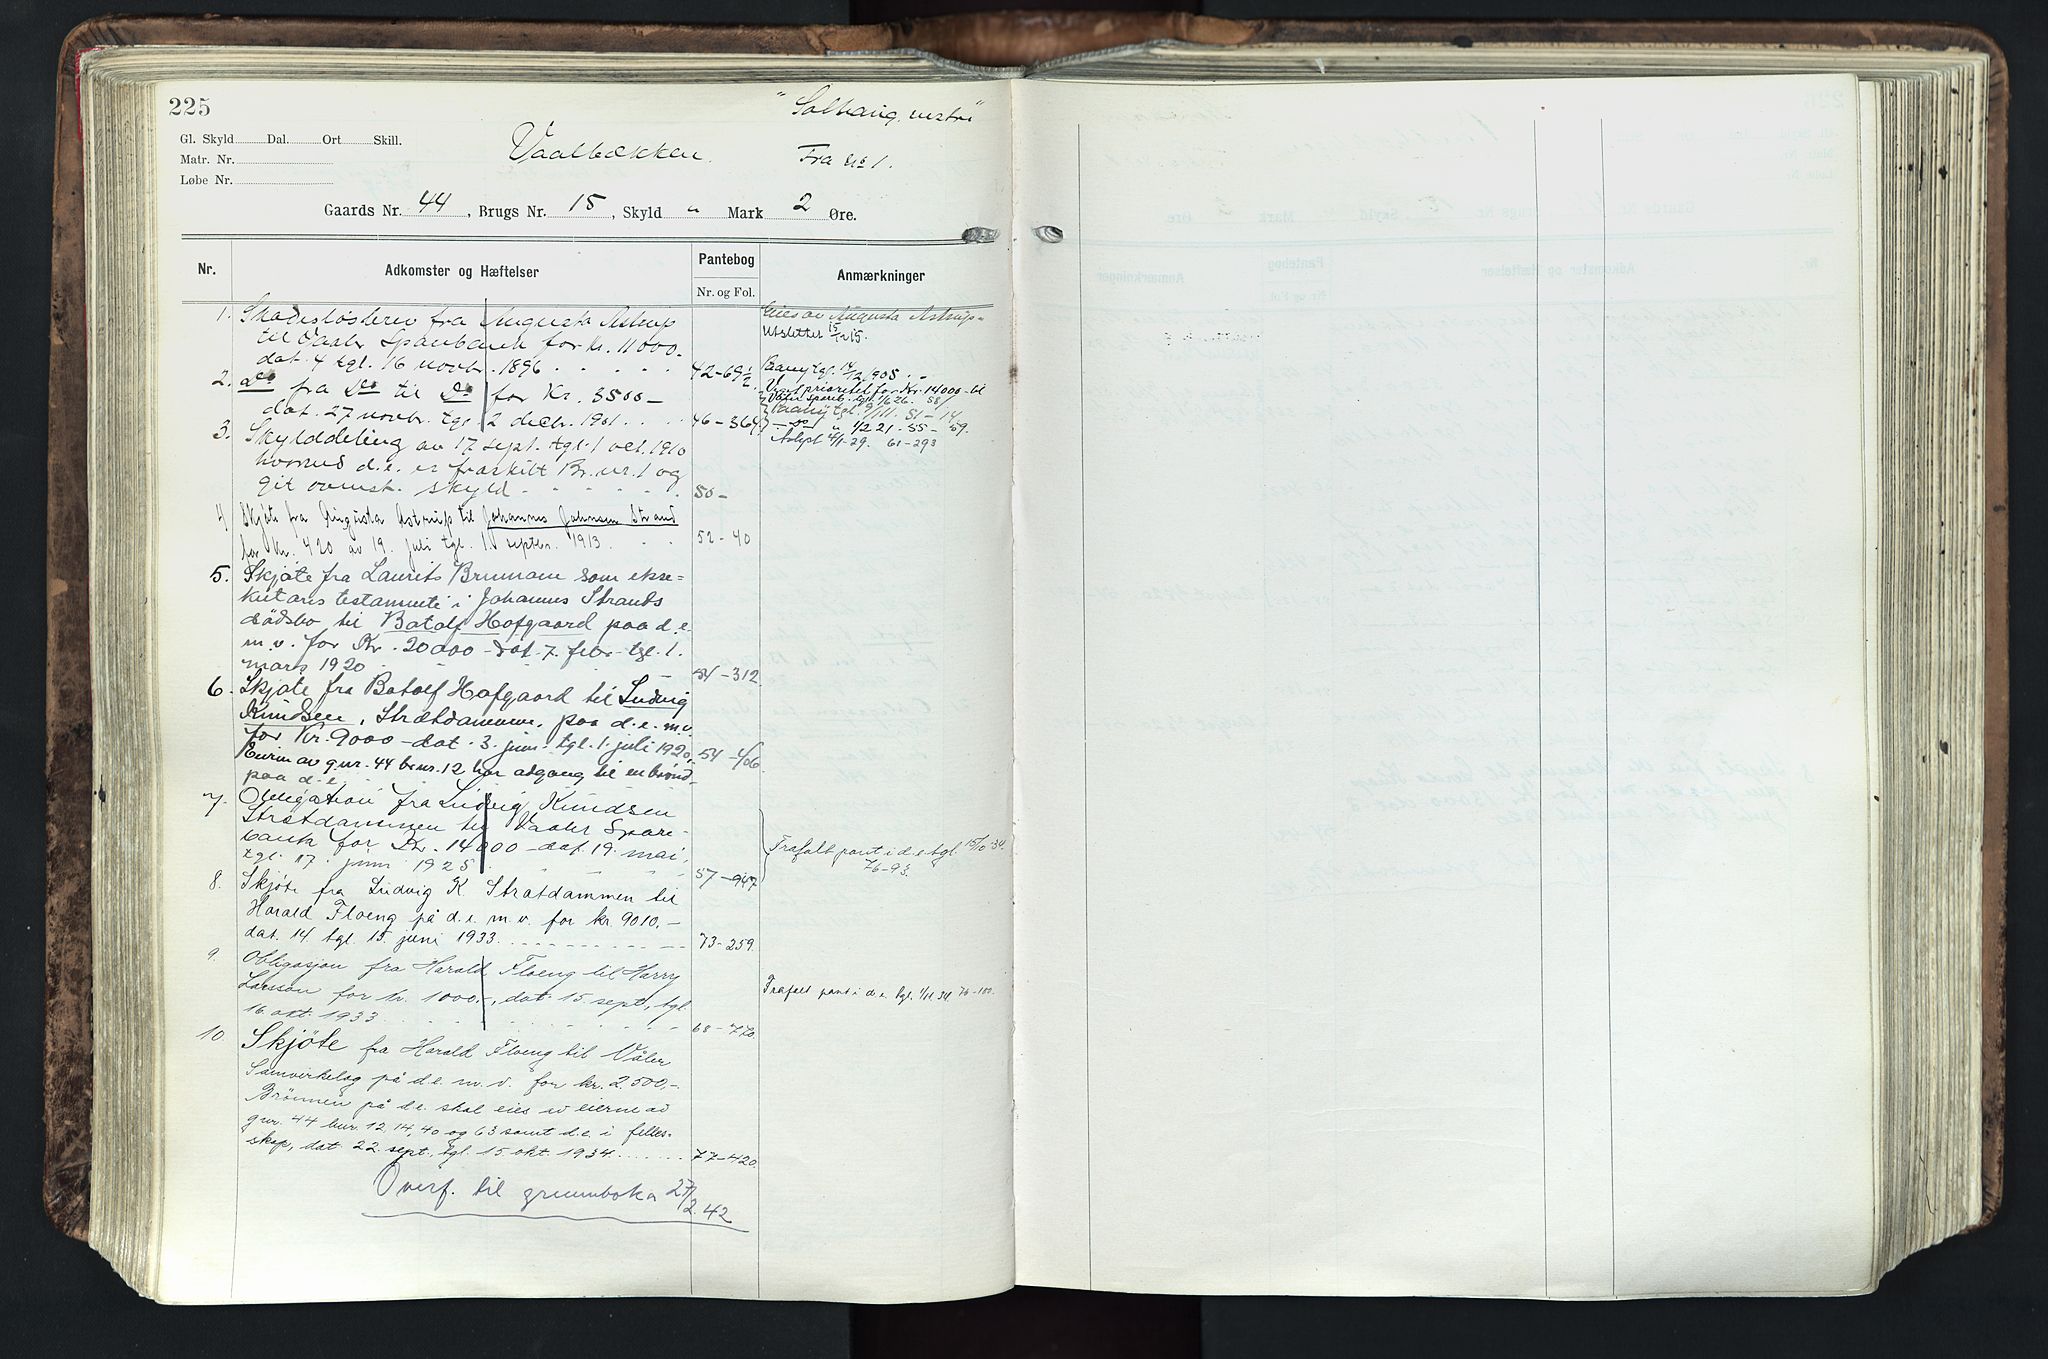 225
"Solhaug, vestre"
Gl. Skyld Dal. Ort Skill.
Matr. Nr.
Løbe Nr.
Vaalbækken.
Fra No 1.
Gaards Nr. 44, Brugs Nr. 15, Skyld " Mark 2 Øre.
Nr. Adkomster og Hæftelser Pantebog Anmærkninger
Nr. og Fol.
1. Skadesløsbrev fra Augusta Astrup
til Vaaler Sparebank for kr. 11000.-
dat. 4 tgl. 16 novbr. 1896 42-69½
Eies av Augusta Astrup-
Utslettet 15/12 15.
2. Do fra Do til Do for Kr. 3500-
dat. 27 novbr. tgl. 2 decbr. 1901 46-364
Paany tgl. 14/12 905
Viget prioritet for Kr. 14000- til
Vaaler spareb. tgl. 1/6 26. 58/
Paany tgl. 9/1 11. 51-14
-do- " 1/2 21. 55-59.
Avlyst 4/1-29. 61-293
3. Skylddeling av 17 sept. tgl. 1 oct. 1910
hvorved d.e. er fraskilt Br.nr. 1 og
git ovenst. skyld 50-
4 Skjøte fra Augusta Astrup til Johannes Johnsen Strand
for kr. 420 av 19. juli tgl. 1. septbr. 1913. 52-40
5. Skjøte fra Laurits Brumoen som ekse-
kutøris testamente i Johannes Strands
dødsbo til Botolf Hofgaard paa d.e.
m.v. for Kr. 20000- dat. 7. febr. tgl. 1.
mars 1920 54-312.
6. Skjøte fra Botolf Hofgaard til Ludvig
Knudsen, Strætdammen, paa d.e.m.v.
for Kr. 9000- dat. 3. juni tgl. 1. juli 1920. 54-406.
Eieren av gnr. 44 brnr. 12 har adgang til en brønd
paa d.e.
7. Obligation fra Ludvig Knudsen
Stratdammen til Vaaler Spare-
bank for Kr. 14000- dat. 19. mai,
tgl. 17. juni 1925 57-947
Frafalt pant i d.e. tgl. 15/10 34.
76-93.
8. Skjøte fra Ludvig K Stratdammen til
Harald Floeng på d.e. m.v. for kr. 9010,-
dat. 14. tgl. 15. juni 1933. 73-259.
9. Obligasjon fra Harald Floeng til Harry
Larsson for kr. 1000,-, dat. 15. sept., tgl.
16. okt. 1933 68-770.
Frafalt pant i d.e. tgl. 1/11 34 76-100.
10. Skjøte fra Harald Floeng til Våler
Samvirkelag på d.e. m.v. for kr. 2.500,-
Brønnen på d.e. skal eies av eierne av
gnr. 44 bnr. 12, 14, 40 og 63 samt d.e. i felles-
skap, dat. 22. sept., tgl. 15. okt. 1934 77-420.
Overf. til grunnboka 27/2.42